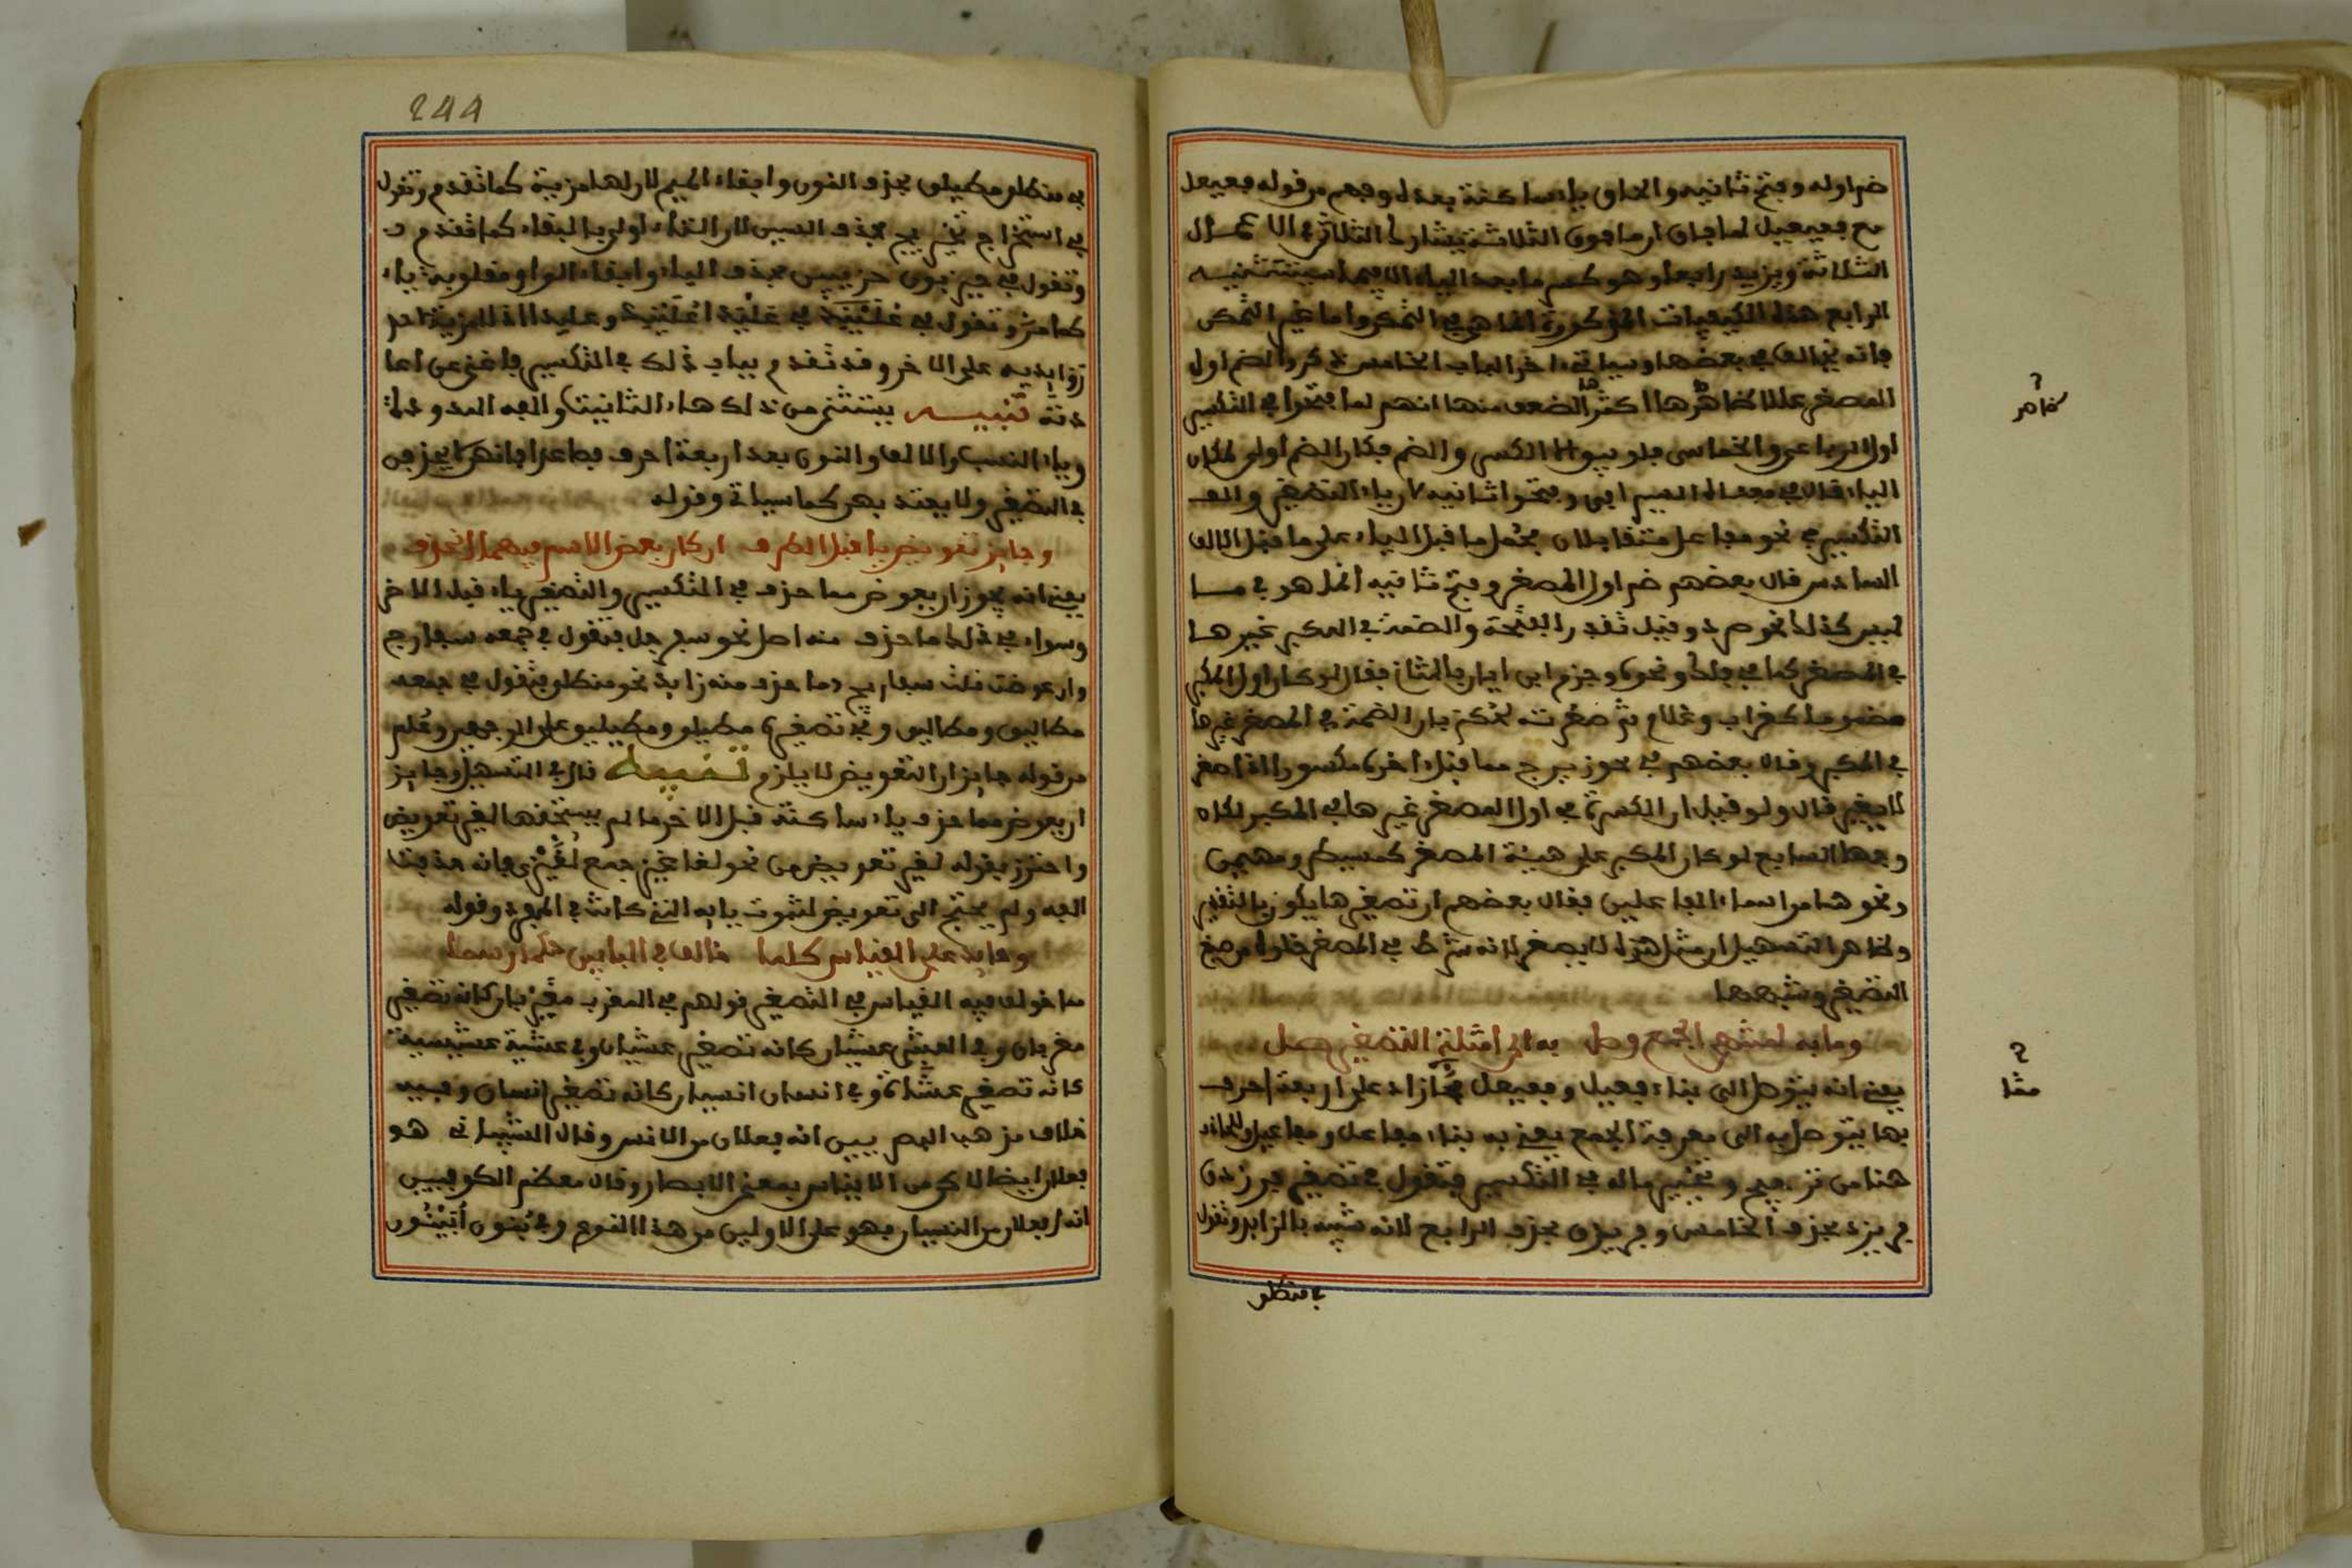 ضم اوله وفتح ثانيه والحاق ياء ساكنة بعد له وفهم من قوله فعيعل
مع فعيعيل لما فاق ان ما فوق الثلاثة يشارك الثلاثي في الاعمال
الثلاثة ويزيد رابعا وهو كسر ما بعد الياء الا فيما سيستثنيه
الرابع هذه الكيفيات المذكورة انما هي في المتمكن واما غير المتمكن
فانه يخالف في بعضها وسياتي اخر الباب الخامس ذكروا لضم اول
المصغر عللا اكثرها الضعف منها انهم لما فتحوا في التكسير
اول الرباعي والخماسي فلم يبق الا الكسر والضم فكان الضم اولى لمكان
الياء قال في وفتحوا ثانيه لان ياء التصغير والف
التكسير في نحو مفاعل متقابلان فحمل ما قبل الياء على ما قبل الالف
السادس قال بعضهم ضم اول المصغر وفتح ثانيه انما هو في ما
ليس كذلك نحو صرد وقيل تقدر الفتحة والضمة في المكبر غيرها
في المصغر كما في فلك ونحوه وجزم ابن اياز بالثاني فقال لو كان اول المكبر
مضموما كغراب وغلام ثم صغرت لحكم بان الضمة في المصغر غيرها
في المكبر وقال بعضهم في نحو زبرج مما قبل اخره مكسور اذا صغر
لا يغير قال ولو قيل ان الكسرة في اول المصغر غيرها في المكبر لكان
وجها السابع لو كان المكبر على هيئة المصغر كمسيطر ومهيمن
ونحوهما من اسماء الفاعلين فقال بعضهم ان تصغيرها يكون بالتقدير
وظاهر التسهيل ان مثل هذا لا يصغر لانه شرط في المصغر خلوه من صيغ
التصغير وشبهها
وما به لمنتهى الجمع وصل به الى امثلة التصغير صل
يعني انه يتوصل الى بناء فعيعل وفعيعيل مما زاد على اربعة احرف
بما يتوصل به الى الجمع يعني به بناء مفاعل ومفاعيل وللحاذف
هنا من ترجيح وتخيير ماله في التكسير فتقول في تصغير فرزدق
فريزد بحذف الخامس وفريزق بحذف الرابع لانه شبيه بالزايد وتقول
في منطلق
ظاهر
مما
244
في منطلق مطيلق بحذف النون وابقاء الميم لان لها مزية كما تقدم وتقول
في استخراج تخيريج بحذف السين لان التاء اولى بالبقاء كما تقدم
وتقول في حيزبون حزيبين بحذف الياء وابقاء الواو مقلوبة ياء
كما مر وتقول في علندى عليند اعليندى وعليدا اذ لا مزية لاحد
زوايديه على الاخر وقد تقدم بيان ذلك في التكسير فاغنى عن اعا
دته تنبيه يستثنى من ذلك هاء التانيث والفه الممدودة
وياء النسب والالف والنون بعد اربعة احرف فصاعدا فانهن لا يحذفن
في التصغير ولا يعتد بهن كما سياتي وقوله
وجايز تعويض يا قبل الطرف ان كان بعض الاسم فيهما انحذف
يعني انه يجوز ان يعوض مما حذف في التكسير والتصغير ياء قبل الاخر
وسواء في ذلك ما حذف منه اصل نحو سفرجل فتقول في جمعه سفارج
وان عوضت قلت سفاريج وما حذف منه زايد نحو منطلق فتقول في جمعه
مطالق ومطاليق وفي تصغيره مطيلق ومطيليق على الوجهين وعلم
من قوله جايز ان التعويض لا يلزم تنبيه قال في التسهيل وجايز
ان يعوض مما حذف ياء ساكنة قبل الاخر ما لم يستحقها لغير تعويض
واحترز بقوله لغير تعويض من نحو لغاغيز جمع لغيزى فانه حذفت
الفه ولم يحتج الى تعويض لثبوت يايه التي كانت في المفرد وقوله
وحايد عن القياس كلما خالف في البابين حكما رسما
مما خولف فيه القياس في التصغير قولهم في المغرب مغيربان كانه تصغير
مغربان وفي العشي عشيان كانه تصغير عشيان وفي عشية عشيشية
كانه تصغير عشاة وفي انسان انيسيان كانه تصغير انسيان ومبنيه
خلاف مذهب البصريين انه فعلان من الانس وقال الشيباني هو
فعلان ايضا لاكن من الايناس بمعنى الابصار وقال معظم الكوفيين
انه افعلان من النسيان فهو على الاولين من هذا النوع وفي بنون ابينون